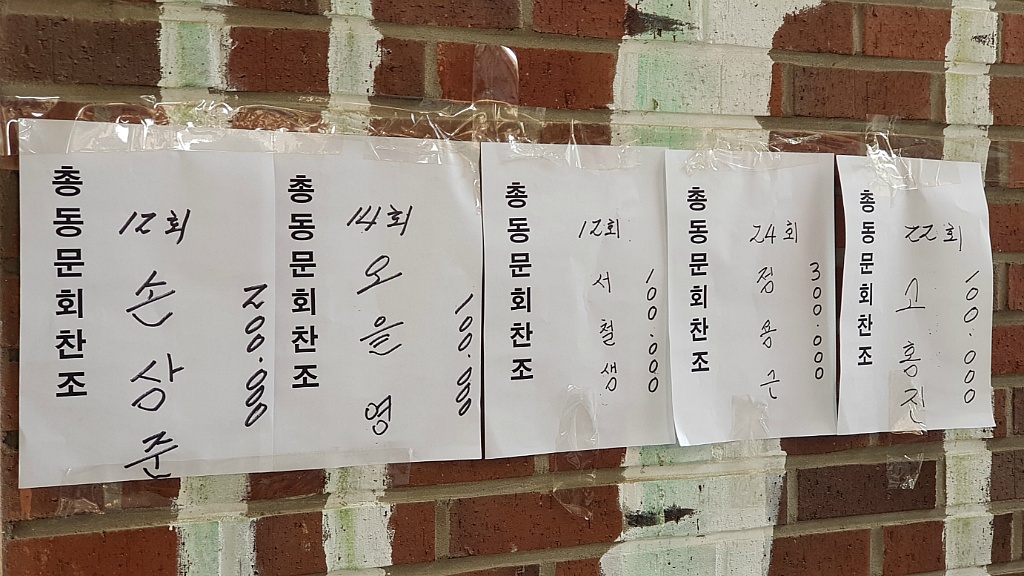 총동문회찬조
12회
손상준
200.000
총동문회찬조
14회
오을영
100.000
총동문회찬조
12회
서철생
100.000
총동문회찬조
24회
정용근
300.000
총동문회찬조
22회
고홍진
100.000